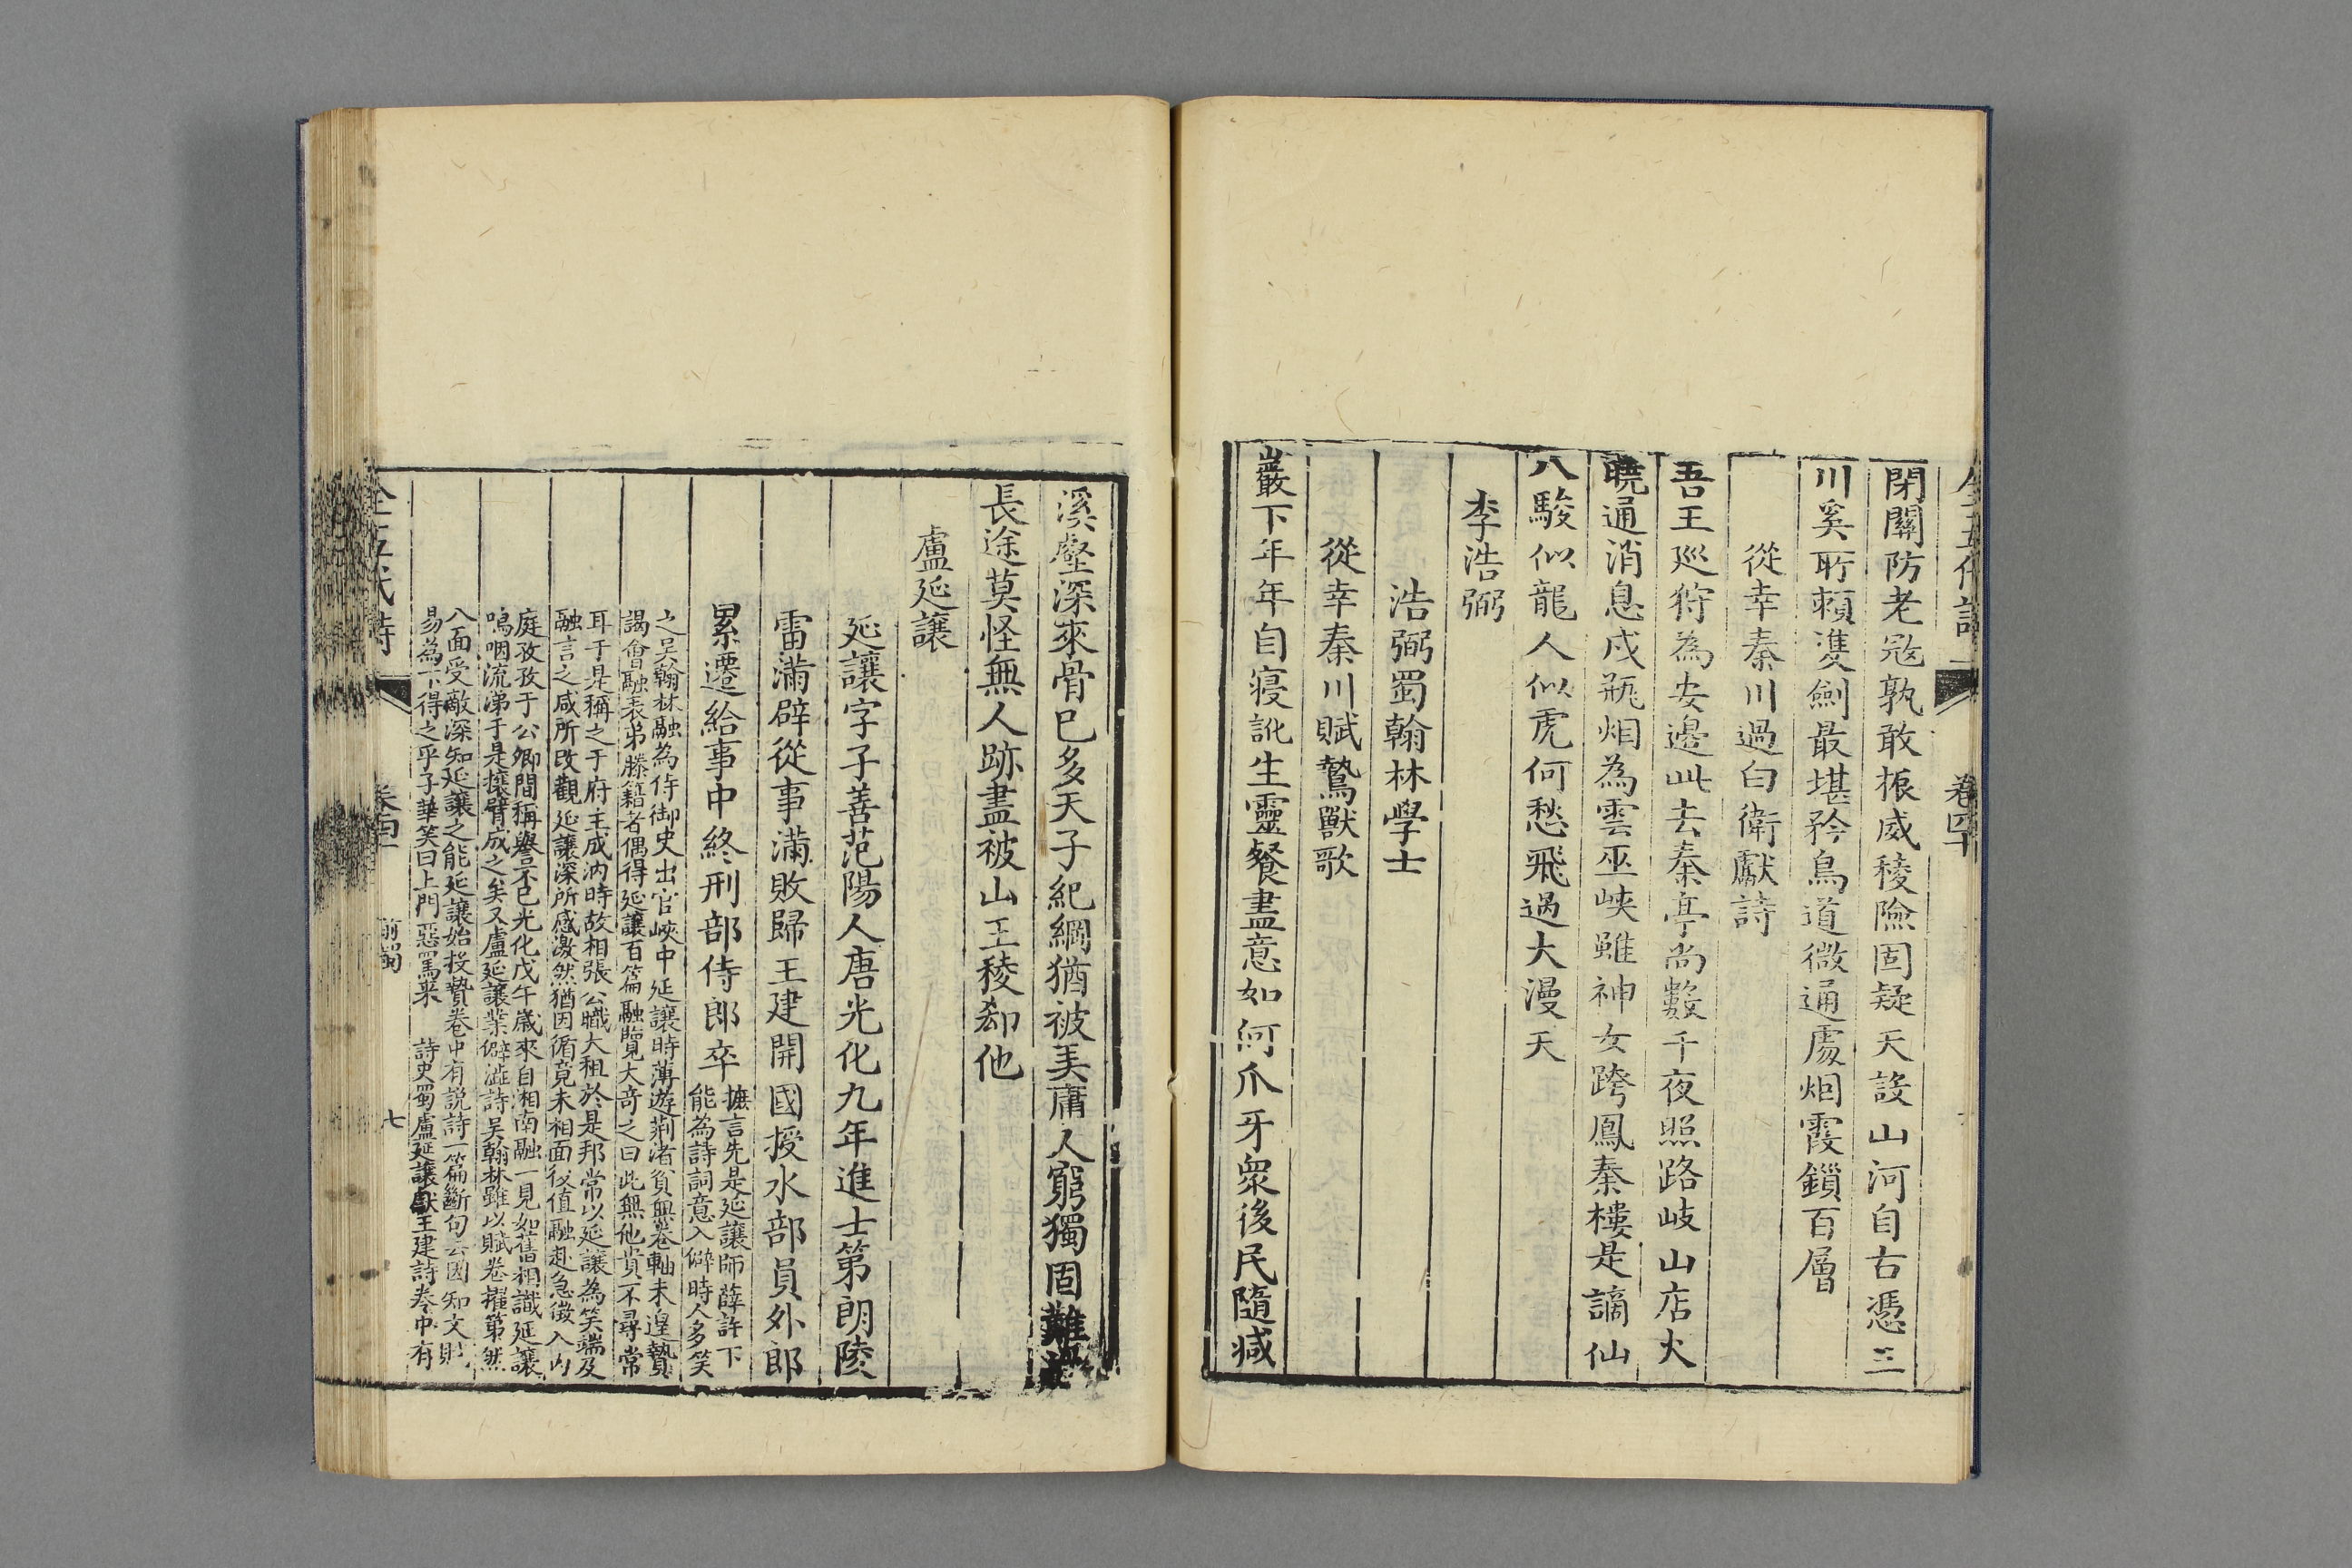 全五代詩
卷四十
閉關防老寇孰敢振威稜險固疑天設山河自古憑三
川奚所賴雙劍最堪矜鳥道微通處烟霞鎖百層
從幸秦川過白衛獻詩
吾王巡狩為安邊此去秦亭尚數千夜照路岐山店火
曉通消息戍瓶烟為雲巫峽雖神女跨鳳秦樓是謫仙
八駿似龍人似虎何愁飛過大漫天
李浩弼
浩弼蜀翰林學士
從幸秦川賦鷙獸歌
巖下年年自寢訛生靈餐盡意如何爪牙衆後民隨減
溪壑深來骨已多天子紀綱猶被美庸人窮獨固難
長途莫怪無人跡盡被山王稜郤他
盧延讓
延讓字子善范陽人唐光化九年進士第朗陵
雷滿辟從事滿敗歸王建開國授水部員外郎
累遷給事中終刑部侍郎卒
摭言先是延讓師薛許下
能為詩詞意入僻時人多笑
之吳翰林融為侍御史出官峽中延讓時薄遊荊渚貧無卷軸未遑贄
謁會融表弟滕籍者偶得延讓百篇融覽大奇之曰此無他貴不尋常
耳于是稱之于府主成汭時故相張公職大租於是邦常以延讓為笑端及
融言之咸所改觀延讓深所感激然猶因循竟未相面後值融赴急徵入內
庭孜孜于公卿間稱譽不已光化戊午歲來自湘南融一見如舊相識延讓
嗚咽流涕于是攘臂成之矣又盧延讓業僻澁詩吳翰林雖以賦卷擢第然
八面受敵深知延讓之能延讓始投贄卷中有說詩一篇斷句云因知文賦
易為下得之乎子華笑曰上門惡罵來 詩史蜀盧延讓獻王建詩卷中有
全五代詩
前蜀
七